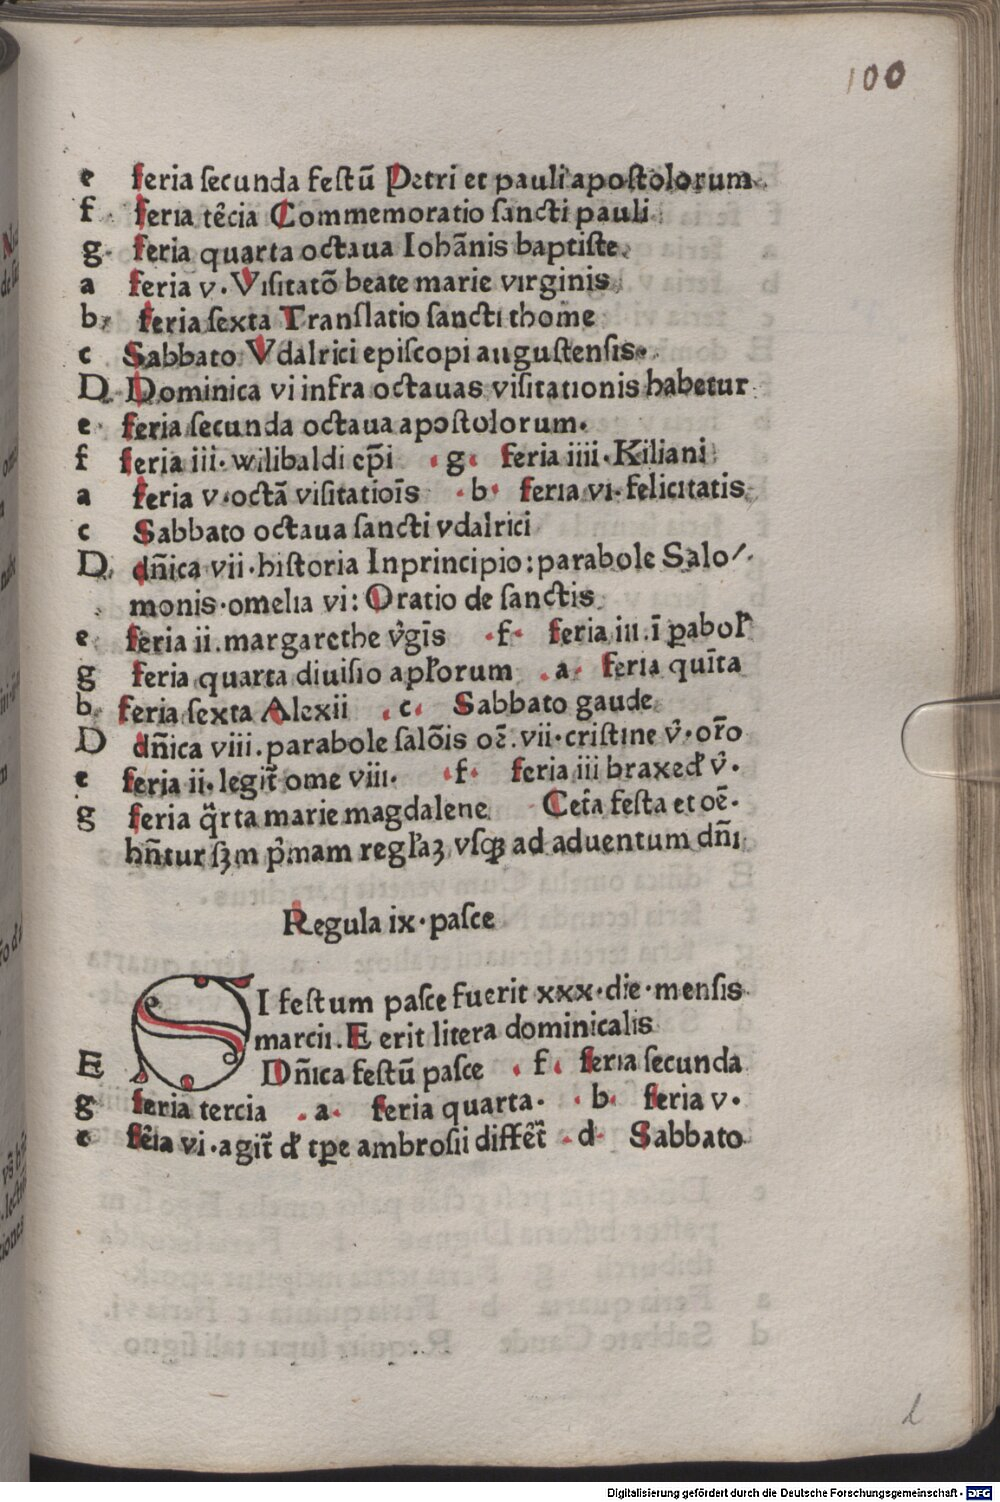 100
e feria secunda festū Petri et pauli apostolorum
f feria têcia Commemoratio sancti pauli
g feria quarta octaua Iohānis baptiste
a feria v. Visitatō beate marie virginis
b feria sexta Translatio sancti thome
c Sabbato Vdalrici episcopi augustensis
D Dominica vi infra octauas visitationis habetur
e feria secunda octaua apostolorum.
f feria iii. wilibaldi ep̄i g feria iiii. Kiliani
a feria v. octā visitatiōis b feria vi. felicitatis
c Sabbato octaua sancti vdalrici
D dn̄ica vii. historia Inprincipio: parabole Salo/
monis. omelia vi: Oratio de sanctis
e feria ii. margarethe v̓gīs f feria iii. ī ꝑaboł
g feria quarta diuisio apłorum a feria quīta
b feria sexta Alexii c Sabbato gaude
D dn̄ica viii. parabole salōis oē. vii. cristine v̓. or̄o
e feria ii. legit̄ ome viii. f feria iii braxed̓ v̓.
g feria q̈rta marie magdalene Cet̓a festa et oē.
hn̄tur sꝫm p̓mam regłaꝫ vsqꝫ ad aduentum dn̄i
Regula ix. pasce
SI festum pasce fuerit xxx. die. mensis
marcii. E erit litera dominicalis
E Dn̄ica festū pasce f feria secunda
g feria tercia a feria quarta. b feria v.
c fēia vi. agit̄ d̓ tꝑe ambrosii diffēt̄ d Sabbato
d
Digitalisierung gefördert durch die Deutsche Forschungsgemeinschaft - DFG